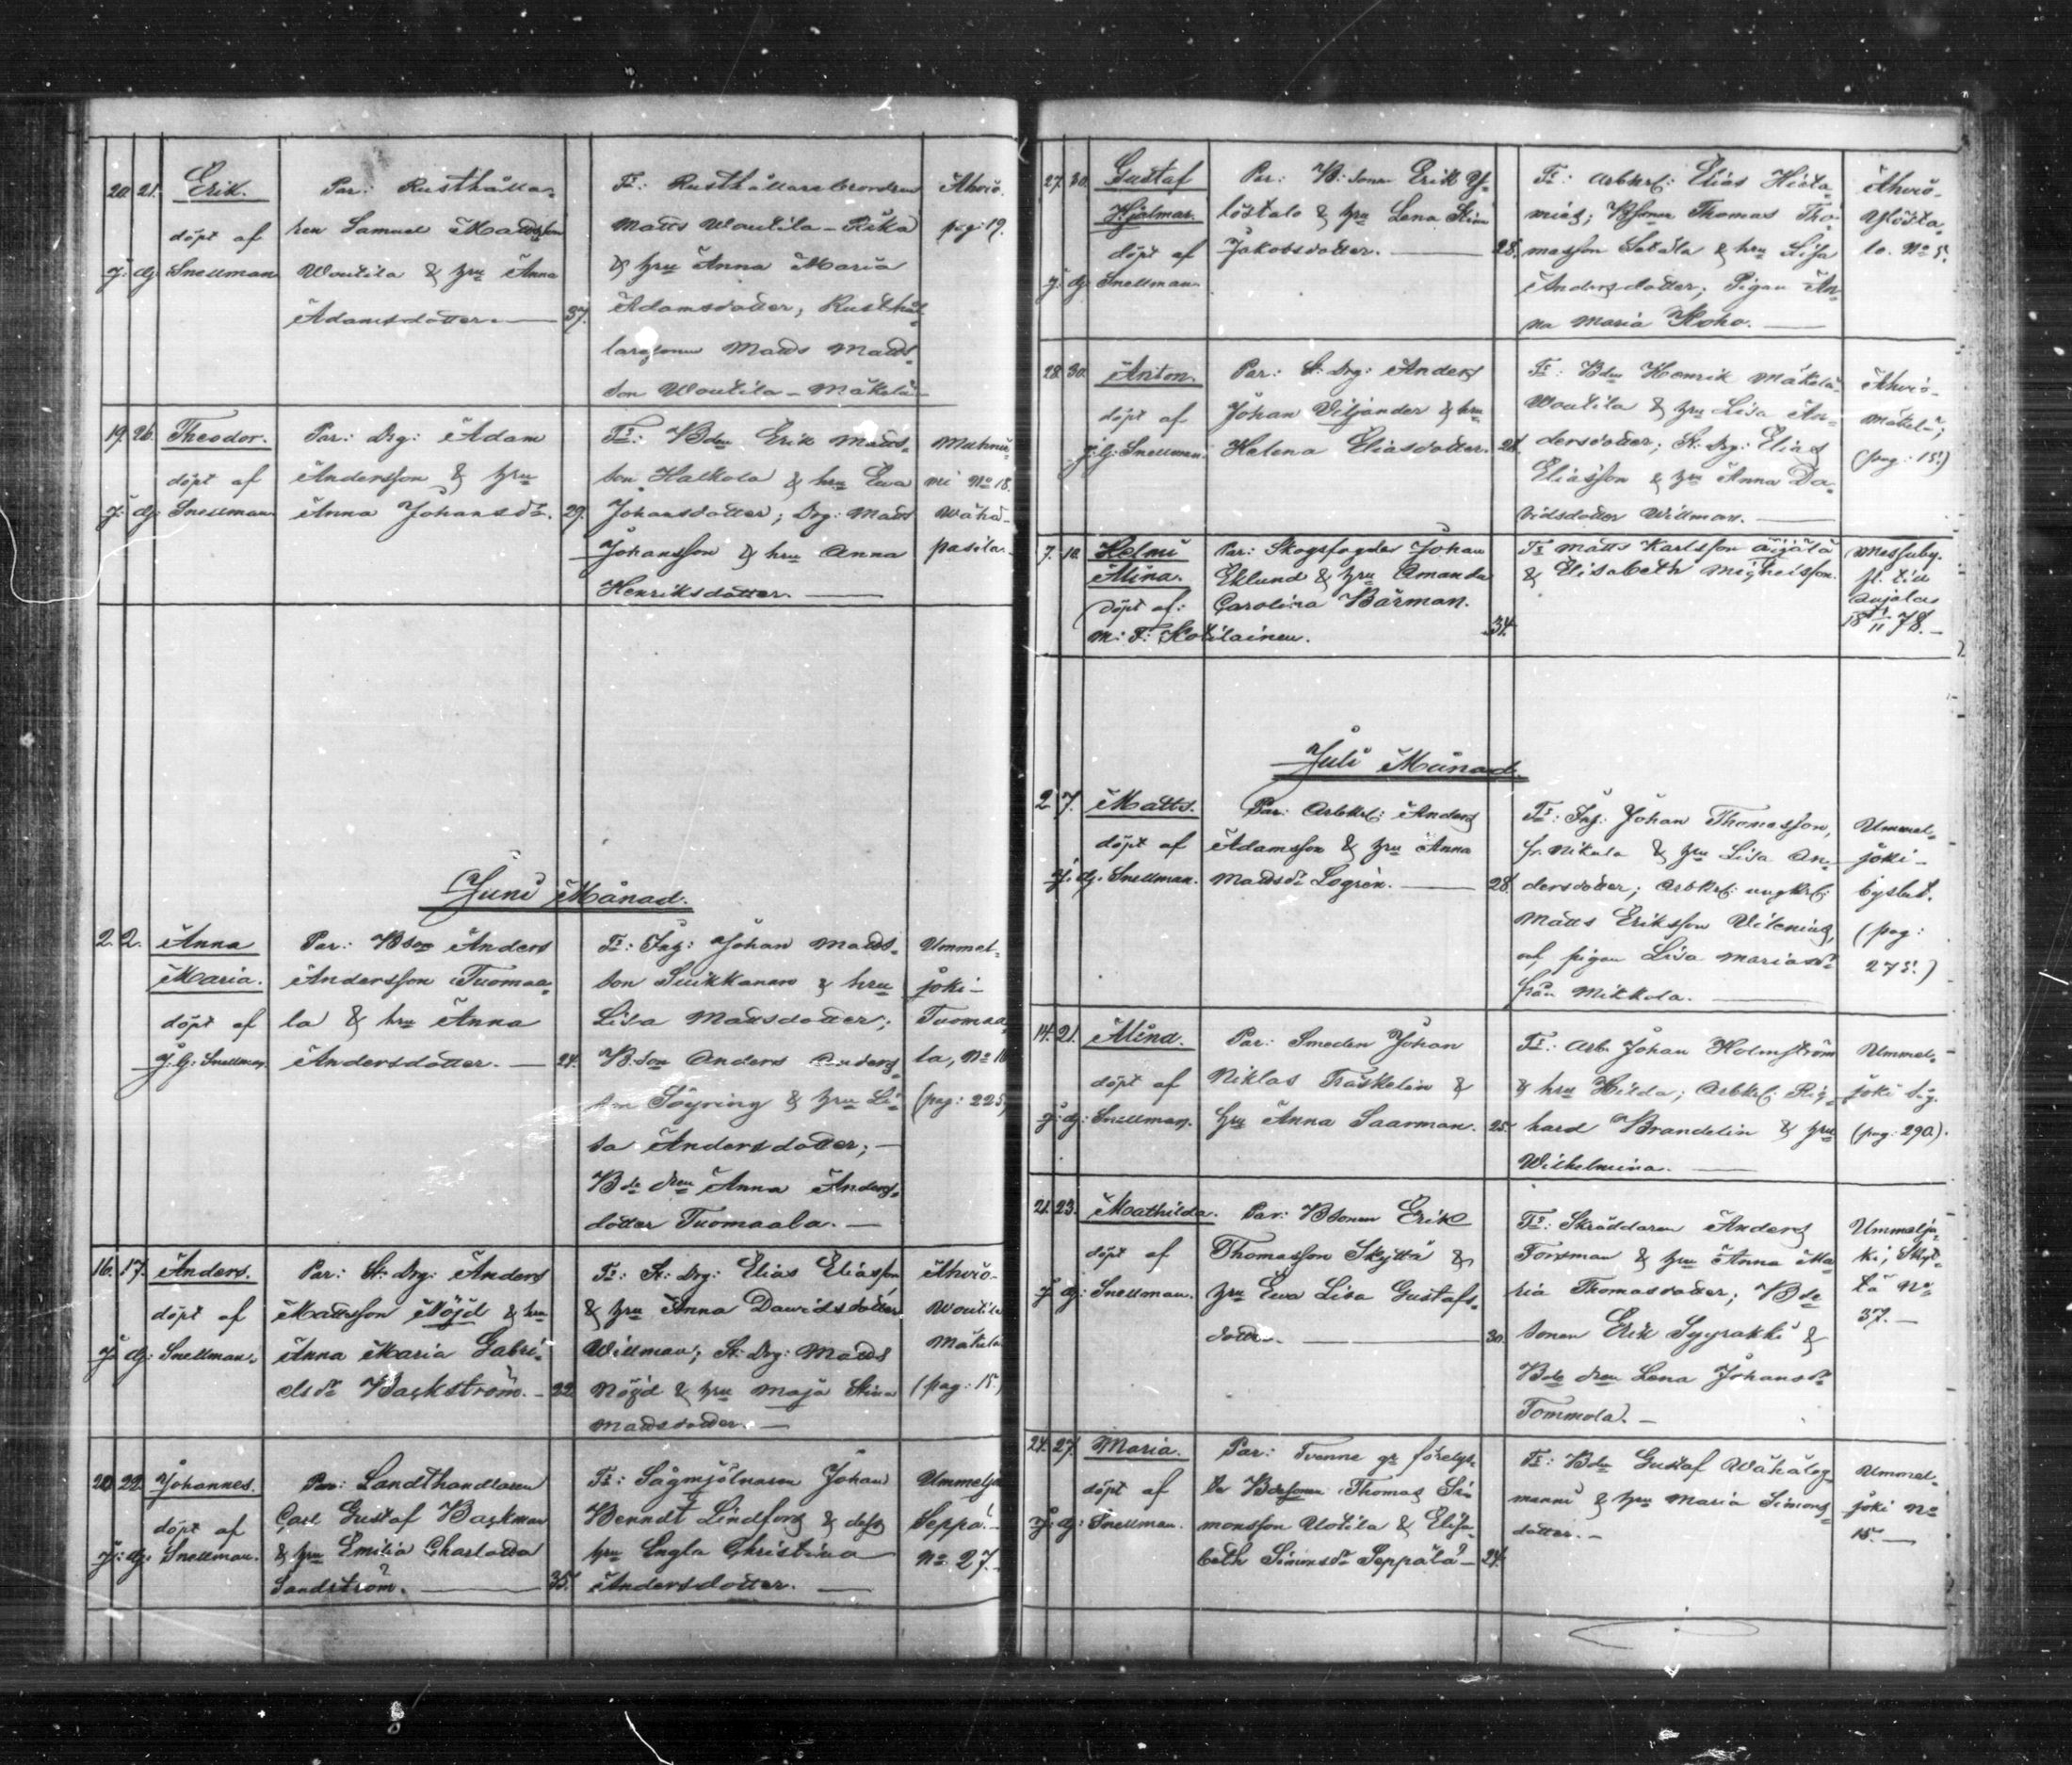 20. 21. Erik. Par: Rusthålla-
döpt af
J. G. Snellman
ren Samuel Mattsson
Woutila & hru Anna
Adamsdotter. — 37.
Ts: Rusthållarebrodren
Matts Woutila-Reka
& hru Anna Maria
Adamsdotter, Rusthål-
larsonen Matts Matts-
son Woutila-Mäkelä
Ahvio.
pag: 19.
19. 26. Theodor.
döpt af
J. G. Snellman
Par: Drg: Adam
Andersson & hru
Anna Johansdr. 29.
Ts: Bdn Erik Matts-
son Halkola & hru Ewa
Johansdotter; Drg: Matts
Johansson & hru Anna
Henriksdotter. —
No 18.
Wähä-
pasila.
Juni Månad.
2. 2. Anna
Maria.
döpt af
J. G. Snellman.
Par: Bson Anders
Andersson Tuomaa-
la & hru Anna
Andersdotter. — 24.
Ts: Inh: Johan Matts-
son Suikkanen & hru
Lisa Mattsdotter;
Bson Anders Anders-
son Söyring & hru Li-
sa Andersdotter; —
Bde dren Anna Anders-
dotter Tuomaala. —
Ummel-
joki-
Tuomaa-
la, No 16
(pag: 225)
16. 17. Anders.
döpt af
J. G. Snellman.
Par: St: Drg: Anders
Mattsson Nöjd & hru
Anna Maria Gabri-
elsdr Backström. — 22.
Ts: St: Drg: Elias Eliasson
& hru Anna Davidsdotter
Willman; St: Drg: Matts
Nöjd & hru Maja Stina
Mattsdotter. —
Ahvio-
Woutila
Mäkelä
(pag: 15.)
20. 22. Johannes.
döpt af
J. G. Snellman.
Par: Landthandlaren
Carl Gustaf Backman
& hru Emilia Charlotta
Sandström. — 35.
Ts: Sågmjölnaren Johan
Berndt Lindfors & dess
hru Engla Christina
Andersdotter. —
Ummeljo
Seppä.
No 27.
27. 30. Gustaf
Hjalmar.
döpt af
J. G. Snellman
Par: B:sonen Erik Y-
löstalo & hru Lena Stina
Jakobsdotter. — 28.
Ts: Arbkrl: Elias Hieta-
mies; Bsonen Thomas Tho-
masson Sutela & hru Lisa
Andersdotter; Pigan An-
na Maria Koho. —
Ahvio-
Ylösta-
lo. No 5.
28. 30. Anton.
döpt af
J. G. Snellman
Par: St: Drg: Anders
Johan Viljander & hru
Helena Eliasdotter. 28.
Ts: Bdn Henrik Mäkelä
Woutila & hru Lisa An-
dersdotter; St: Drg: Elias
Eliasson & hru Anna Da-
vidsdotter Willman. —
Ahvio-
Mäkelä;
(pag: 15.)
7. 10. Helmi
Alina.
döpt af:
M: F: Kotilainen.
Par: Skogsfogden Johan
Eklund & hru Amanda
Carolina Bärman. 34.
Ts Matts Karlsson Äijälä
& Elisabeth
Messuby.
fl. till
Anjala
18 1/11 78. —
Juli Månad.
2. 7. Matts.
döpt af
J. G. Snellman.
Par: Arbkrl: Anders
Adamsson & hru Anna
Mattsdr Logren. — 28.
Ts: Inh: Johan Thomasson,
fr. Nikula & hru Lisa An-
dersdotter; Arbkrl: ungkrl:
Matts Eriksson Vilenius,
och pigan Lisa Mariasdr
från Mikkola. —
Ummel-
joki-
byslut.
(pag:
275.)
14. 21. Alina.
döpt af
J. G. Snellman.
Par: Smeden Johan
Niklas Träskelin &
hru Anna Saarman. 25.
Ts: Arb. Johan Holmström
& hru Hilda; Arbkrl: Rig-
hard Brandelin & hru
Wilhelmina. —
Ummel-
joki såg.
(pag: 290.)
21. 23. Mathilda.
döpt af
J. G. Snellman.
Par: Bsonen Erik
Thomasson Skyttä &
hru Ewa Lisa Gustafs-
dotter. — 30.
Ts: Skräddaren Anders
Forsman & hru Anna Ma-
ria Thomasdotter; Bde
sonen Erik Syyrakki &
Bde dren Lena Johansdr
Tommola. —
Ummeljo-
ki, Skyt-
tä No
37. —
24. 27. Maria.
döpt af
J. G. Snellman.
Par: Tvenne gr förelof-
de Bdesonen Thomas Si-
monsson Uotila & Elisa-
beth Simonsdr Seppälä — 24.
Ts: Bdn Gustaf Wähälog-
manni & hru Maria Simons-
dotter. —
Ummel-
joki No
15. —